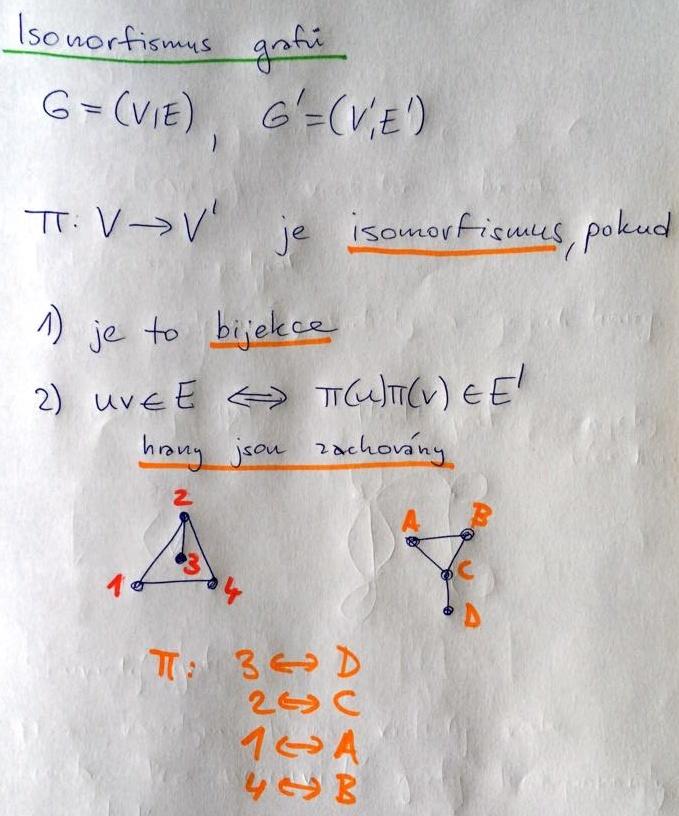 Isomorfismus grafů
G = (V,E), G' = (V',E')
π: V → V' je isomorfismus, pokud
1) je to bijekce
2) uv ∈ E ⟺ π(u)π(v) ∈ E'
hrany jsou zachovány
2
1 3 4
A B
C
D
π: 3 ↔ D
2 ↔ C
1 ↔ A
4 ↔ B